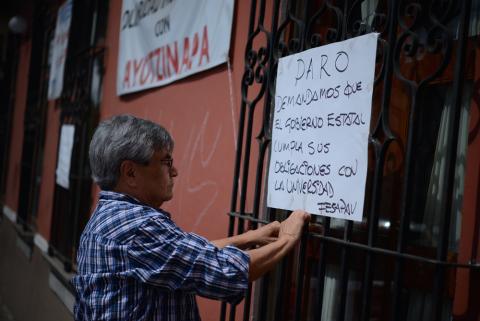 CON
AYOTZINAPA
DARO
DEMANDAMOS QUE
EL GOBIERNO ESTATAL
CUMPLA SUS
OBLIGACIONES CON
LA UNIVERSIDAD
FESAPAUV